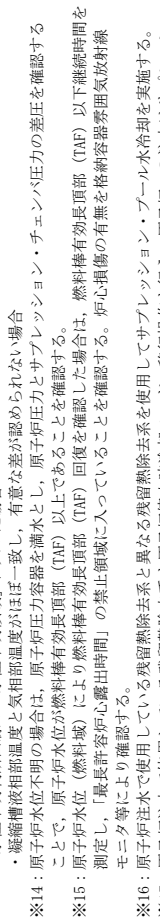 ・凝縮槽液相部温度と気相部温度がほぼ一致し，有意な差が認められない場合
※14：原子炉水位不明の場合は，原子炉圧力容器を満水とし，原子炉圧力とサプレッション・チェンバ圧力の差圧を確認する
ことで，原子炉水位が燃料棒有効長頂部（TAF）以上であることを確認する。
※15：原子炉水位（燃料域）により燃料棒有効長頂部（TAF）回復を確認した場合は，燃料棒有効長頂部（TAF）以下継続時間を
測定し，「最長許容炉心露出時間」の禁止領域に入っていることを確認する。炉心損傷の有無を格納容器雰囲気放射線
モニタ等により確認する。
※16：原子炉注水で使用している残留熱除去系と異なる残留熱除去系を使用してサプレッション・プール水冷却を実施する。